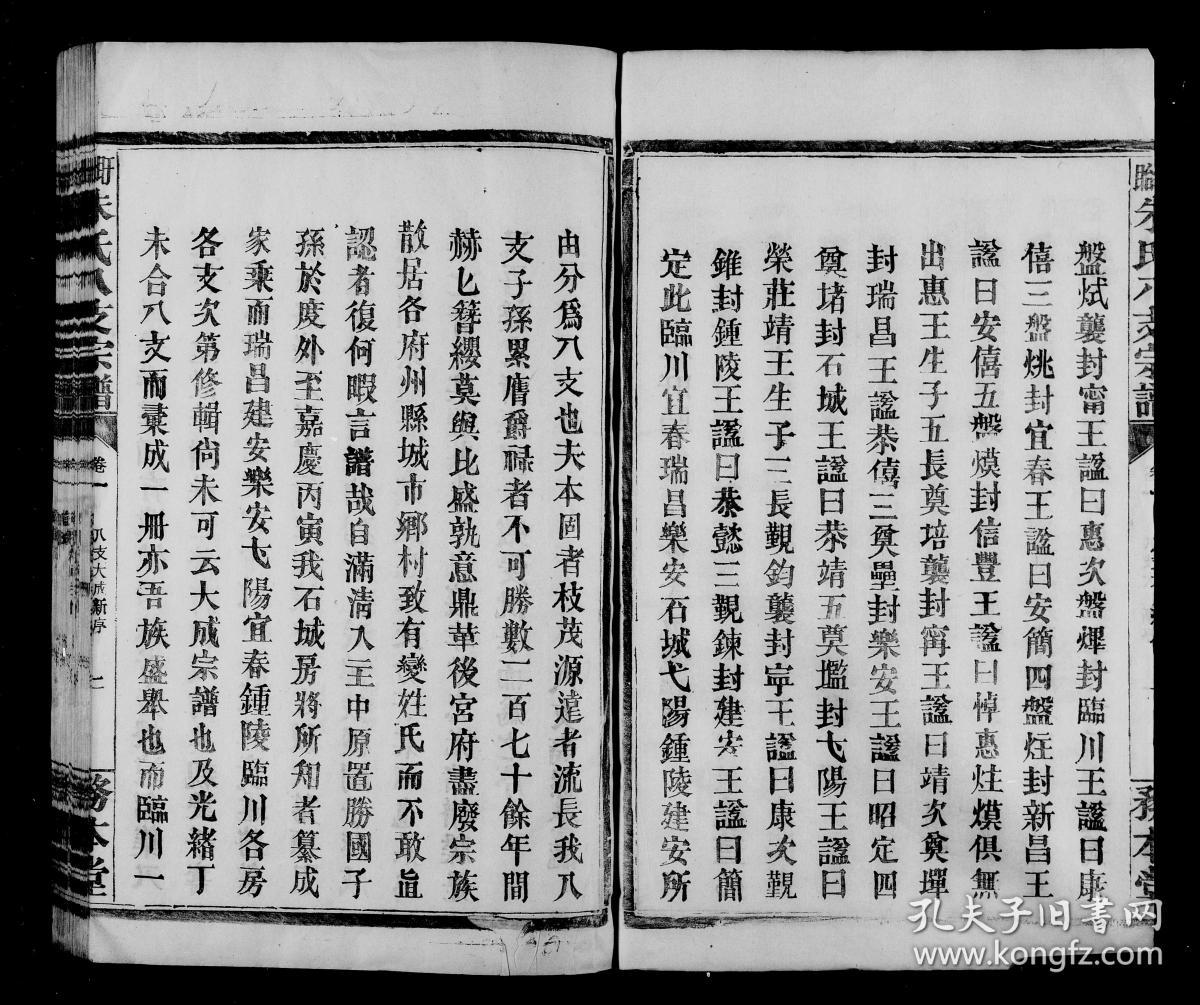 盤烒襲封甯王諡曰惠次盤熚封臨川王諡曰康
僖三盤烑封宜春王諡曰安簡四盤炷封新昌王
諡曰安僖五盤熯封信豐王諡曰悼惠炷熯俱無
出惠王生子五長奠培襲封甯王諡曰靖次奠墠
封瑞昌王諡恭僖三奠壘封樂安王諡曰昭定四
奠堵封石城王諡曰恭靖五奠壏封弋陽王諡曰
榮莊靖王生子三長覲鈞襲封寧王諡曰康次覲
錐封鍾陵王諡曰恭懿三覲鍊封建安王諡曰簡
定此臨川宜春瑞昌樂安石城弋陽鍾陵建安所
由分爲八支也夫本固者枝茂源遠者流長我八
支子孫累膺爵祿者不可勝數二百七十餘年間
赫匕簪纓莫與比盛孰意鼎革後宮府盡廢宗族
散居各府州縣城市鄉村致有變姓氏而不敢直
認者復何暇言譜哉自滿淸入主中原置勝國子
孫於度外至嘉慶丙寅我石城房將所知者纂成
家乘而瑞昌建安樂安弋陽宜春鍾陵臨川各房
各支次第修輯尙未可云大成宗譜也及光緖丁
未合八支而彙成一册亦吾族盛舉也而臨川一
朱氏八支宗譜
卷一
八支大成新序
務本堂
孔夫子旧书网
www.kongfz.com